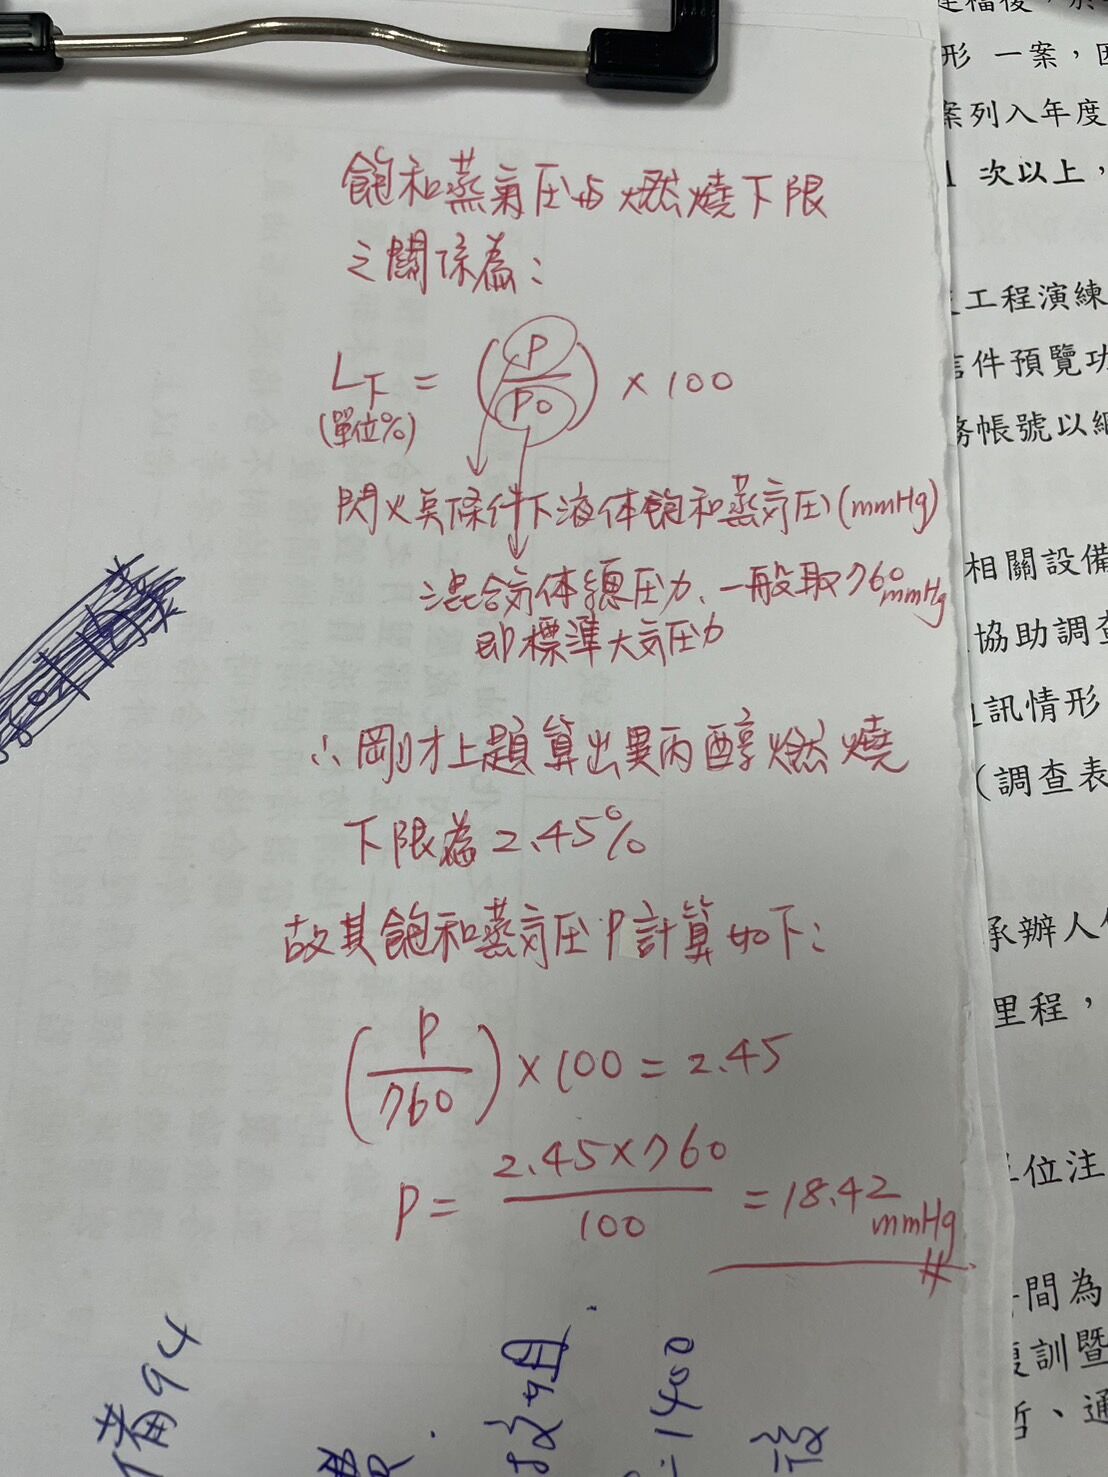 飽和蒸氣压与燃燒下限
之關係為：
L下 = (P/P0) × 100
(單位%)
閃火点條件下液体飽和蒸気圧(mmHg)
混合気体總圧力、一般取760mmHg
即標準大気圧力
∴剛才上題算出異丙醇燃燒
下限為2.45%
故其飽和蒸気圧P計算如下：
(P/760) × 100 = 2.45
P = 2.45×760/100 = 18.42 mmHg #
備94
=1400
形 一案，因
案列入年度
1 次以上，
工程演練
信件預覽功
務帳號以網
相關設備
協助調查
訊情形
（調查表
承辦人
里程，
單位注
間為
複訓暨
、通